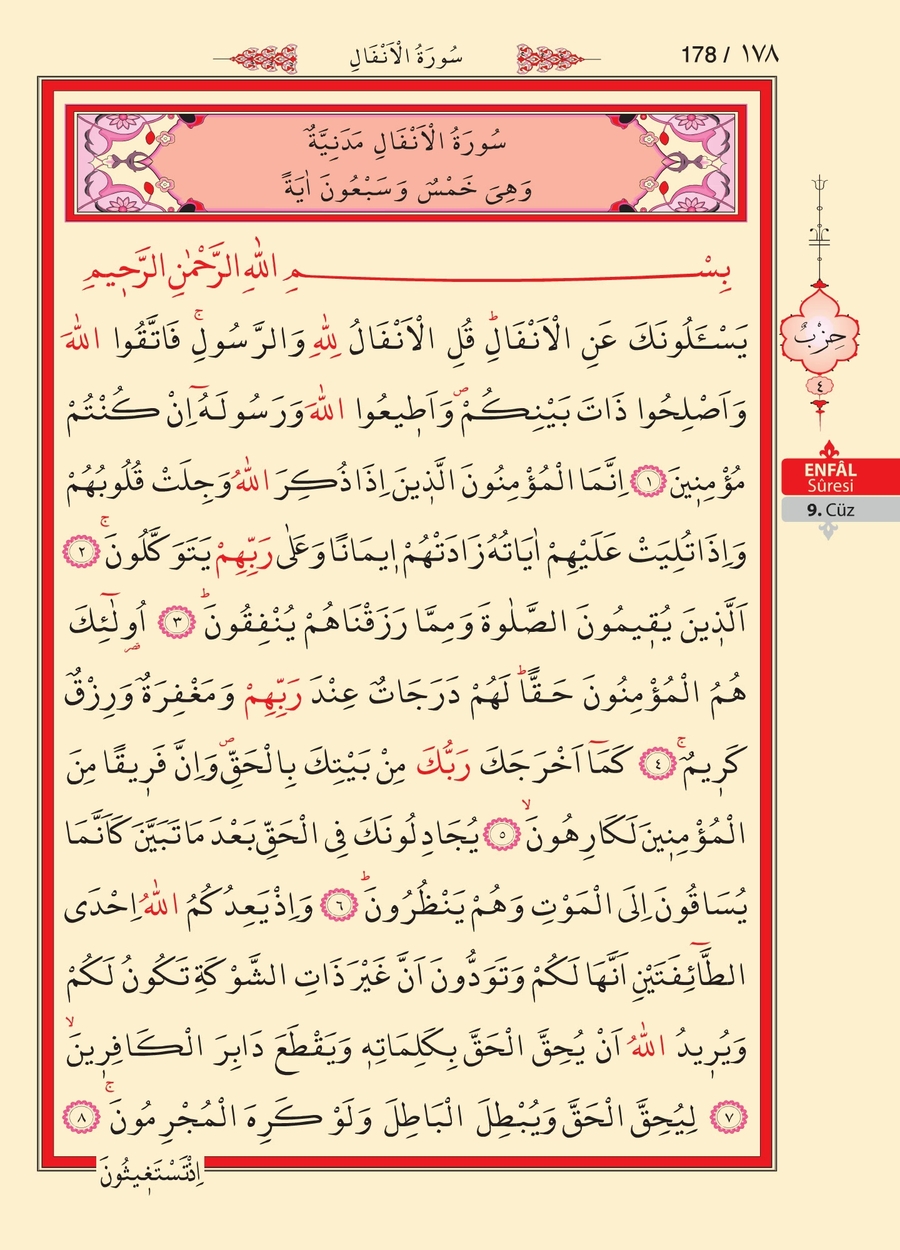 178 / ١٧٨
سُورَةُ الْاَنْفَالِ
سُورَةُ الْاَنْفَالِ مَدَنِيَّةٌ
وَهِىَ خَمْسٌ وَسَبْعُونَ اٰيَةً
بِسْمِ اللّٰهِ الرَّحْمٰنِ الرَّحٖيمِ
يَسْـَٔلُونَكَ عَنِ الْاَنْفَالِۜ قُلِ الْاَنْفَالُ لِلّٰهِ وَالرَّسُولِۚ فَاتَّقُوا اللّٰهَ
وَاَصْلِحُوا ذَاتَ بَيْنِكُمْۖ وَاَطٖيعُوا اللّٰهَ وَرَسُولَهُٓ اِنْ كُنْتُمْ
مُؤْمِنٖينَ ﴿١﴾ اِنَّمَا الْمُؤْمِنُونَ الَّذٖينَ اِذَا ذُكِرَ اللّٰهُ وَجِلَتْ قُلُوبُهُمْ
وَاِذَا تُلِيَتْ عَلَيْهِمْ اٰيَاتُهُ زَادَتْهُمْ اٖيمَانًا وَعَلٰى رَبِّهِمْ يَتَوَكَّلُونَۚ ﴿٢﴾
اَلَّذٖينَ يُقٖيمُونَ الصَّلٰوةَ وَمِمَّا رَزَقْنَاهُمْ يُنْفِقُونَۜ ﴿٣﴾ اُو۬لٰٓئِكَ
هُمُ الْمُؤْمِنُونَ حَقًّاۜ لَهُمْ دَرَجَاتٌ عِنْدَ رَبِّهِمْ وَمَغْفِرَةٌ وَرِزْقٌ
كَرٖيمٌۚ ﴿٤﴾ كَمَٓا اَخْرَجَكَ رَبُّكَ مِنْ بَيْتِكَ بِالْحَقِّۖ وَاِنَّ فَرٖيقًا مِنَ
الْمُؤْمِنٖينَ لَكَارِهُونَۙ ﴿٥﴾ يُجَادِلُونَكَ فِى الْحَقِّ بَعْدَ مَا تَبَيَّنَ كَاَنَّمَا
يُسَاقُونَ اِلَى الْمَوْتِ وَهُمْ يَنْظُرُونَۜ ﴿٦﴾ وَاِذْ يَعِدُكُمُ اللّٰهُ اِحْدَى
الطَّٓائِفَتَيْنِ اَنَّهَا لَكُمْ وَتَوَدُّونَ اَنَّ غَيْرَ ذَاتِ الشَّوْكَةِ تَكُونُ لَكُمْ
وَيُرٖيدُ اللّٰهُ اَنْ يُحِقَّ الْحَقَّ بِكَلِمَاتِهٖ وَيَقْطَعَ دَابِرَ الْكَافِرٖينَۙ
﴿٧﴾ لِيُحِقَّ الْحَقَّ وَيُبْطِلَ الْبَاطِلَ وَلَوْ كَرِهَ الْمُجْرِمُونَۚ ﴿٨﴾
اِذْتَسْتَغٖيثُونَ
حِزْبٌ
٤
ENFÂL
Sûresi
9. Cüz